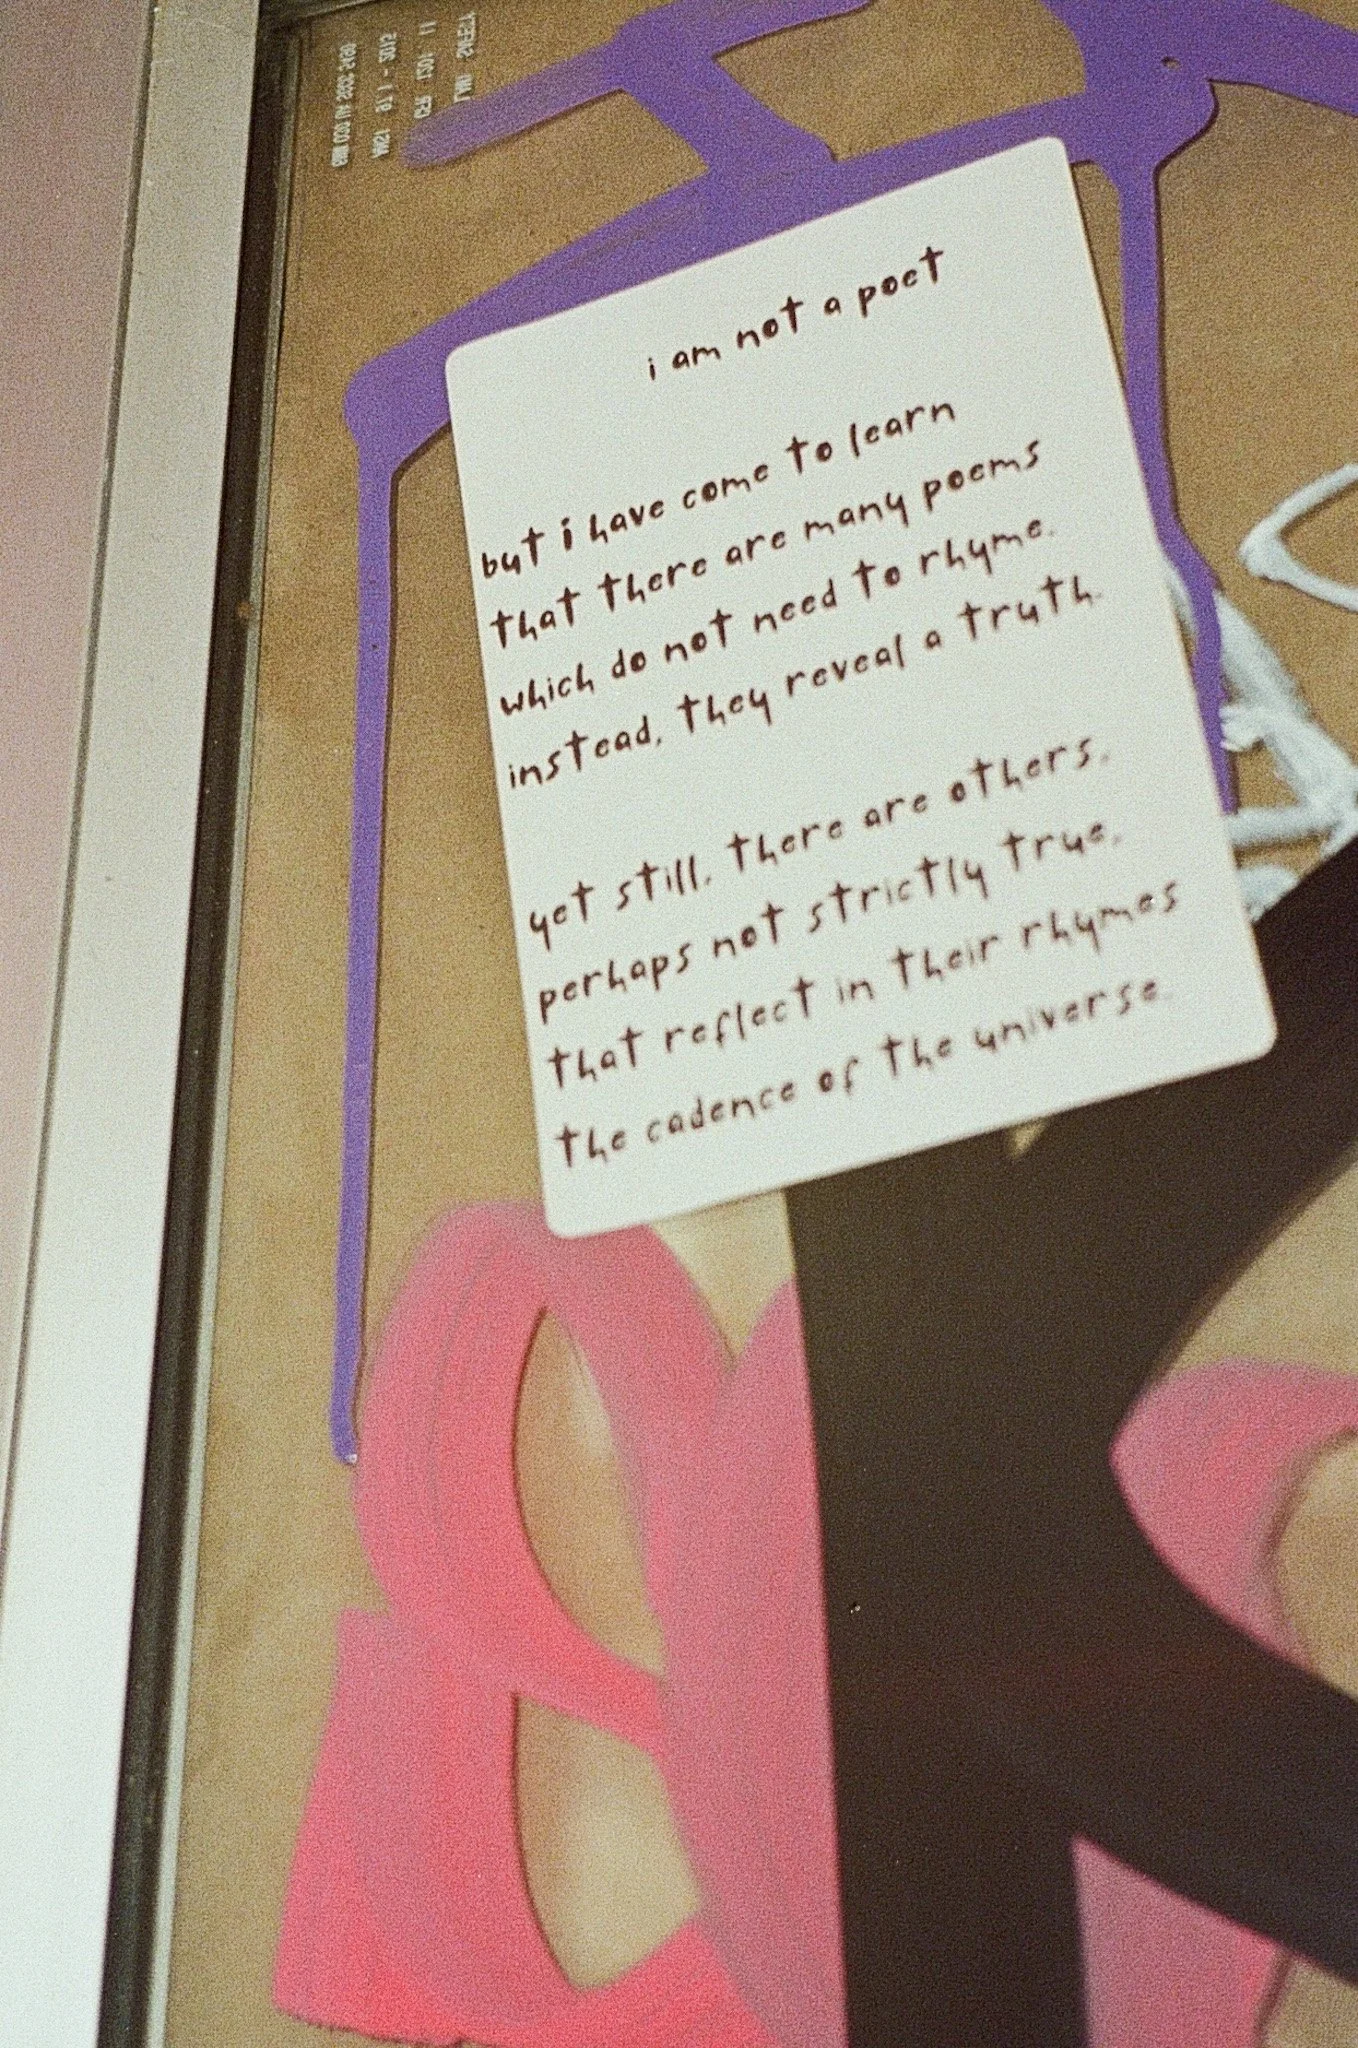 i am not a poet
but i have come to learn
that there are many poems
which do not need to rhyme.
instead, they reveal a truth.
yet still, there are others,
perhaps not strictly true,
that reflect in their rhymes
the cadence of the universe.